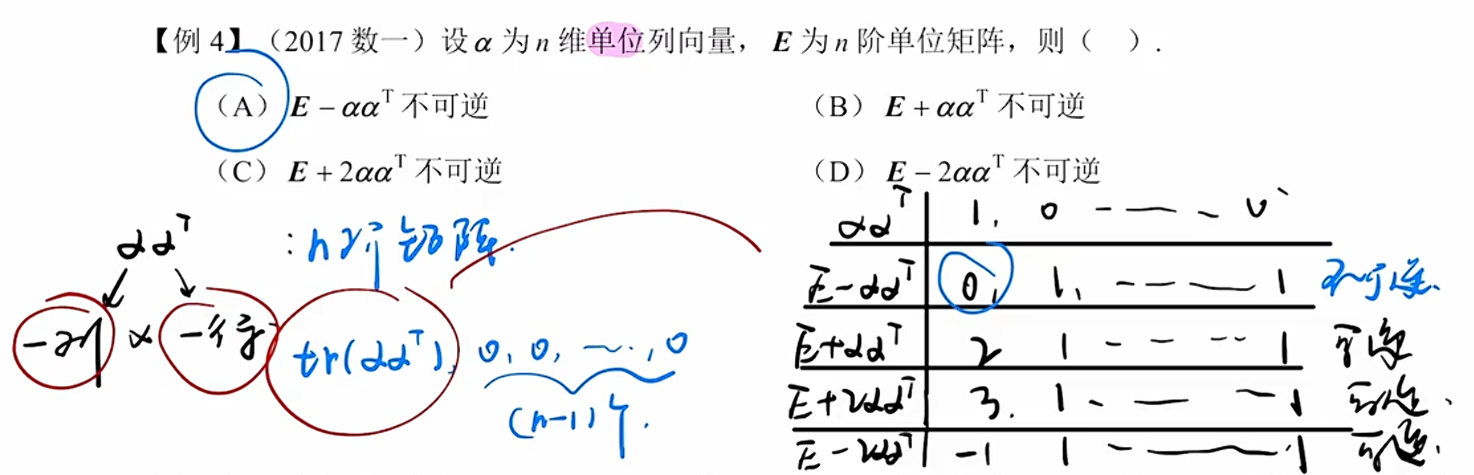 【例 4】（2017 数一）设 α 为 n 维单位列向量， E 为 n 阶单位矩阵，则（ ）.
（A） E − αα^T 不可逆 （B） E + αα^T 不可逆
（C） E + 2αα^T 不可逆 （D） E − 2αα^T 不可逆
αα^T : n阶矩阵.
一列 × 一行
tr(αα^T), 0, 0, ⋯, 0
(n−1)个.
αα^T 1, 0 ---- 0
E−αα^T 0, 1, ---- 1 不可逆.
E+αα^T 2 1 ---- 1 可逆
E+2αα^T 3. 1 ---- 1 可逆.
E−2αα^T −1 1 ---- 1 可逆.